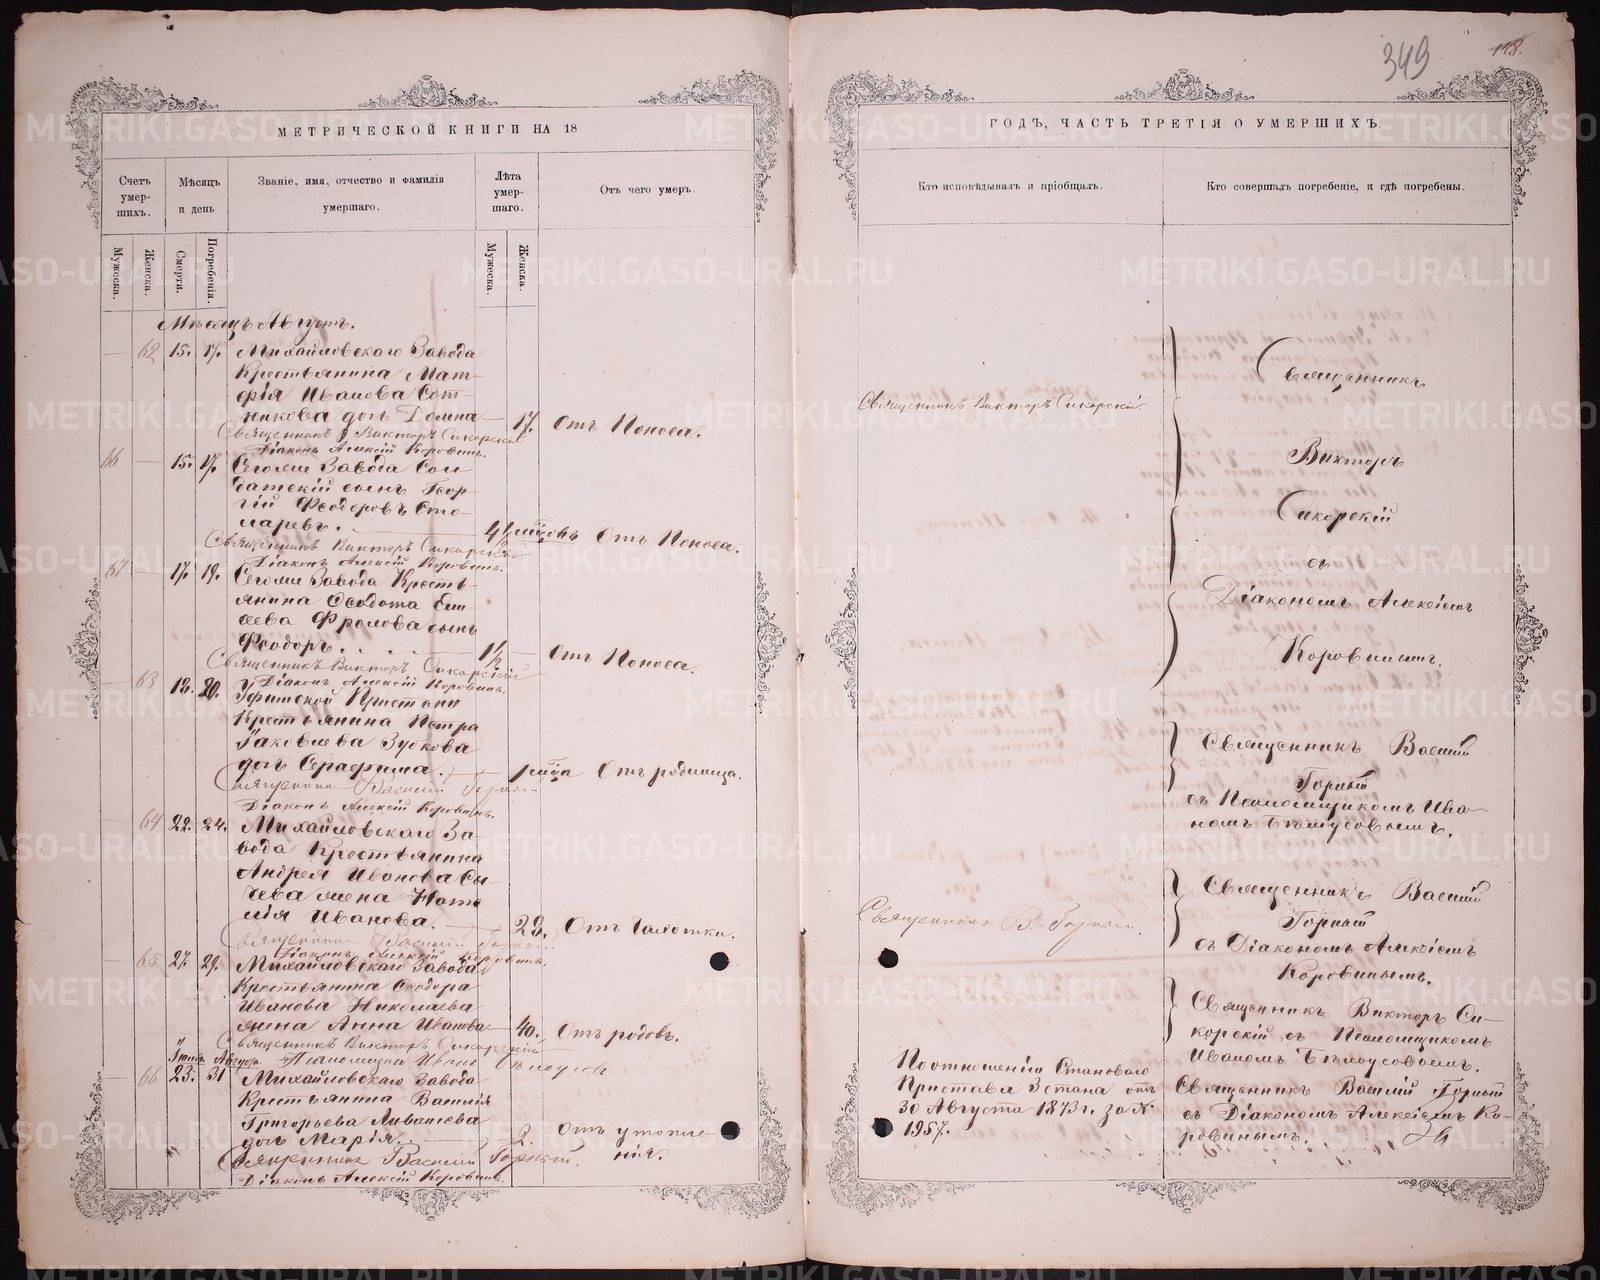 349
118.
МЕТРИЧЕСКОЙ КНИГИ НА 18
ГОДЪ, ЧАСТЬ ТРЕТІЯ О УМЕРШИХЪ.
Счетъ умер-шихъ.
Мѣсяцъ и день
Званіе, имя, отчество и фамилія умершаго.
Лѣта умер-шаго.
Отъ чего умеръ.
Кто исповѣдывалъ и пріобщалъ.
Кто совершалъ погребеніе, и гдѣ погребены.
Мужеска.
Женска.
Смерти.
Погребенія.
Мужеска.
Женска.
Мѣсяцъ Августъ.
62 15. 17. Михайловскаго Завода
Крестьянина Мат-
фія Иванова Сот-
никова дочь Домна 17. Отъ Поноса.
Священникъ Викторъ Сикорскій
Діаконъ Алексій Коровинъ.
66 15. 17. Сегоже Завода Сол-
датскій сынъ Геор-
гій Феодоровъ Сто-
ляревъ. Отъ Поноса.
Священникъ Викторъ Сикорскій
Діаконъ Алексій Коровинъ.
67 17. 19. Сегоже Завода Кресть-
янина Феодота Ели
сеева Фролова сынъ
Феодоръ. 1½ Отъ Поноса.
Священникъ Викторъ Сикорскій
Діаконъ Алексій Коровинъ.
63 18. 20. Уфимской Пристани
Крестьянина Петра
Іаковлева Зубкова
дочь Серафима. 1 мѣсяца Отъ родимца.
Священникъ Василій Горный
Діаконъ Алексій Коровинъ.
64 22. 24. Михайловскаго За-
вода Крестьянина
Андрея Иванова Сы-
чева жена Ната
лія Иванова. 23. Отъ Чахотки.
Священникъ Василій Горный
Діаконъ Алексій Коровинъ.
65 27. 29. Михайловскаго Завода
Крестьянина Феодора
Иванова Николаева
жена Анна Иванова 40. Отъ родовъ.
Священникъ Викторъ Сикорскій
Псаломщикъ Иванъ Бѣлоусовъ
66 23. 31 Михайловскаго Завода
Крестьянина Василія
Григорьева
дочь Марія. 2. Отъ утопле-
нія.
Священникъ Василій Горный.
Діаконъ Алексій Коровинъ.
Священникъ Викторъ Сикорскій.
Священникъ В. Горный.
По отношенію Становаго
Пристава 3 стана отъ
30 Августа 1873 г. за №
1957.
Священникъ
Викторъ
Сикорскій
съ
Діакономъ Алексіемъ
Коровинымъ.
Священникъ Василій
Горный
съ Псаломщикомъ Ива-
номъ Бѣлоусовымъ.
Священникъ Василій
Горный
съ Діакономъ Алексіемъ
Коровинымъ.
Священникъ Викторъ Си-
корскій съ Псаломщикомъ
Иваномъ Бѣлоусовымъ.
Священникъ Василій Горный
съ Діакономъ Алексіемъ Ко-
ровинымъ.
METRIKI.GASO-URAL.RU